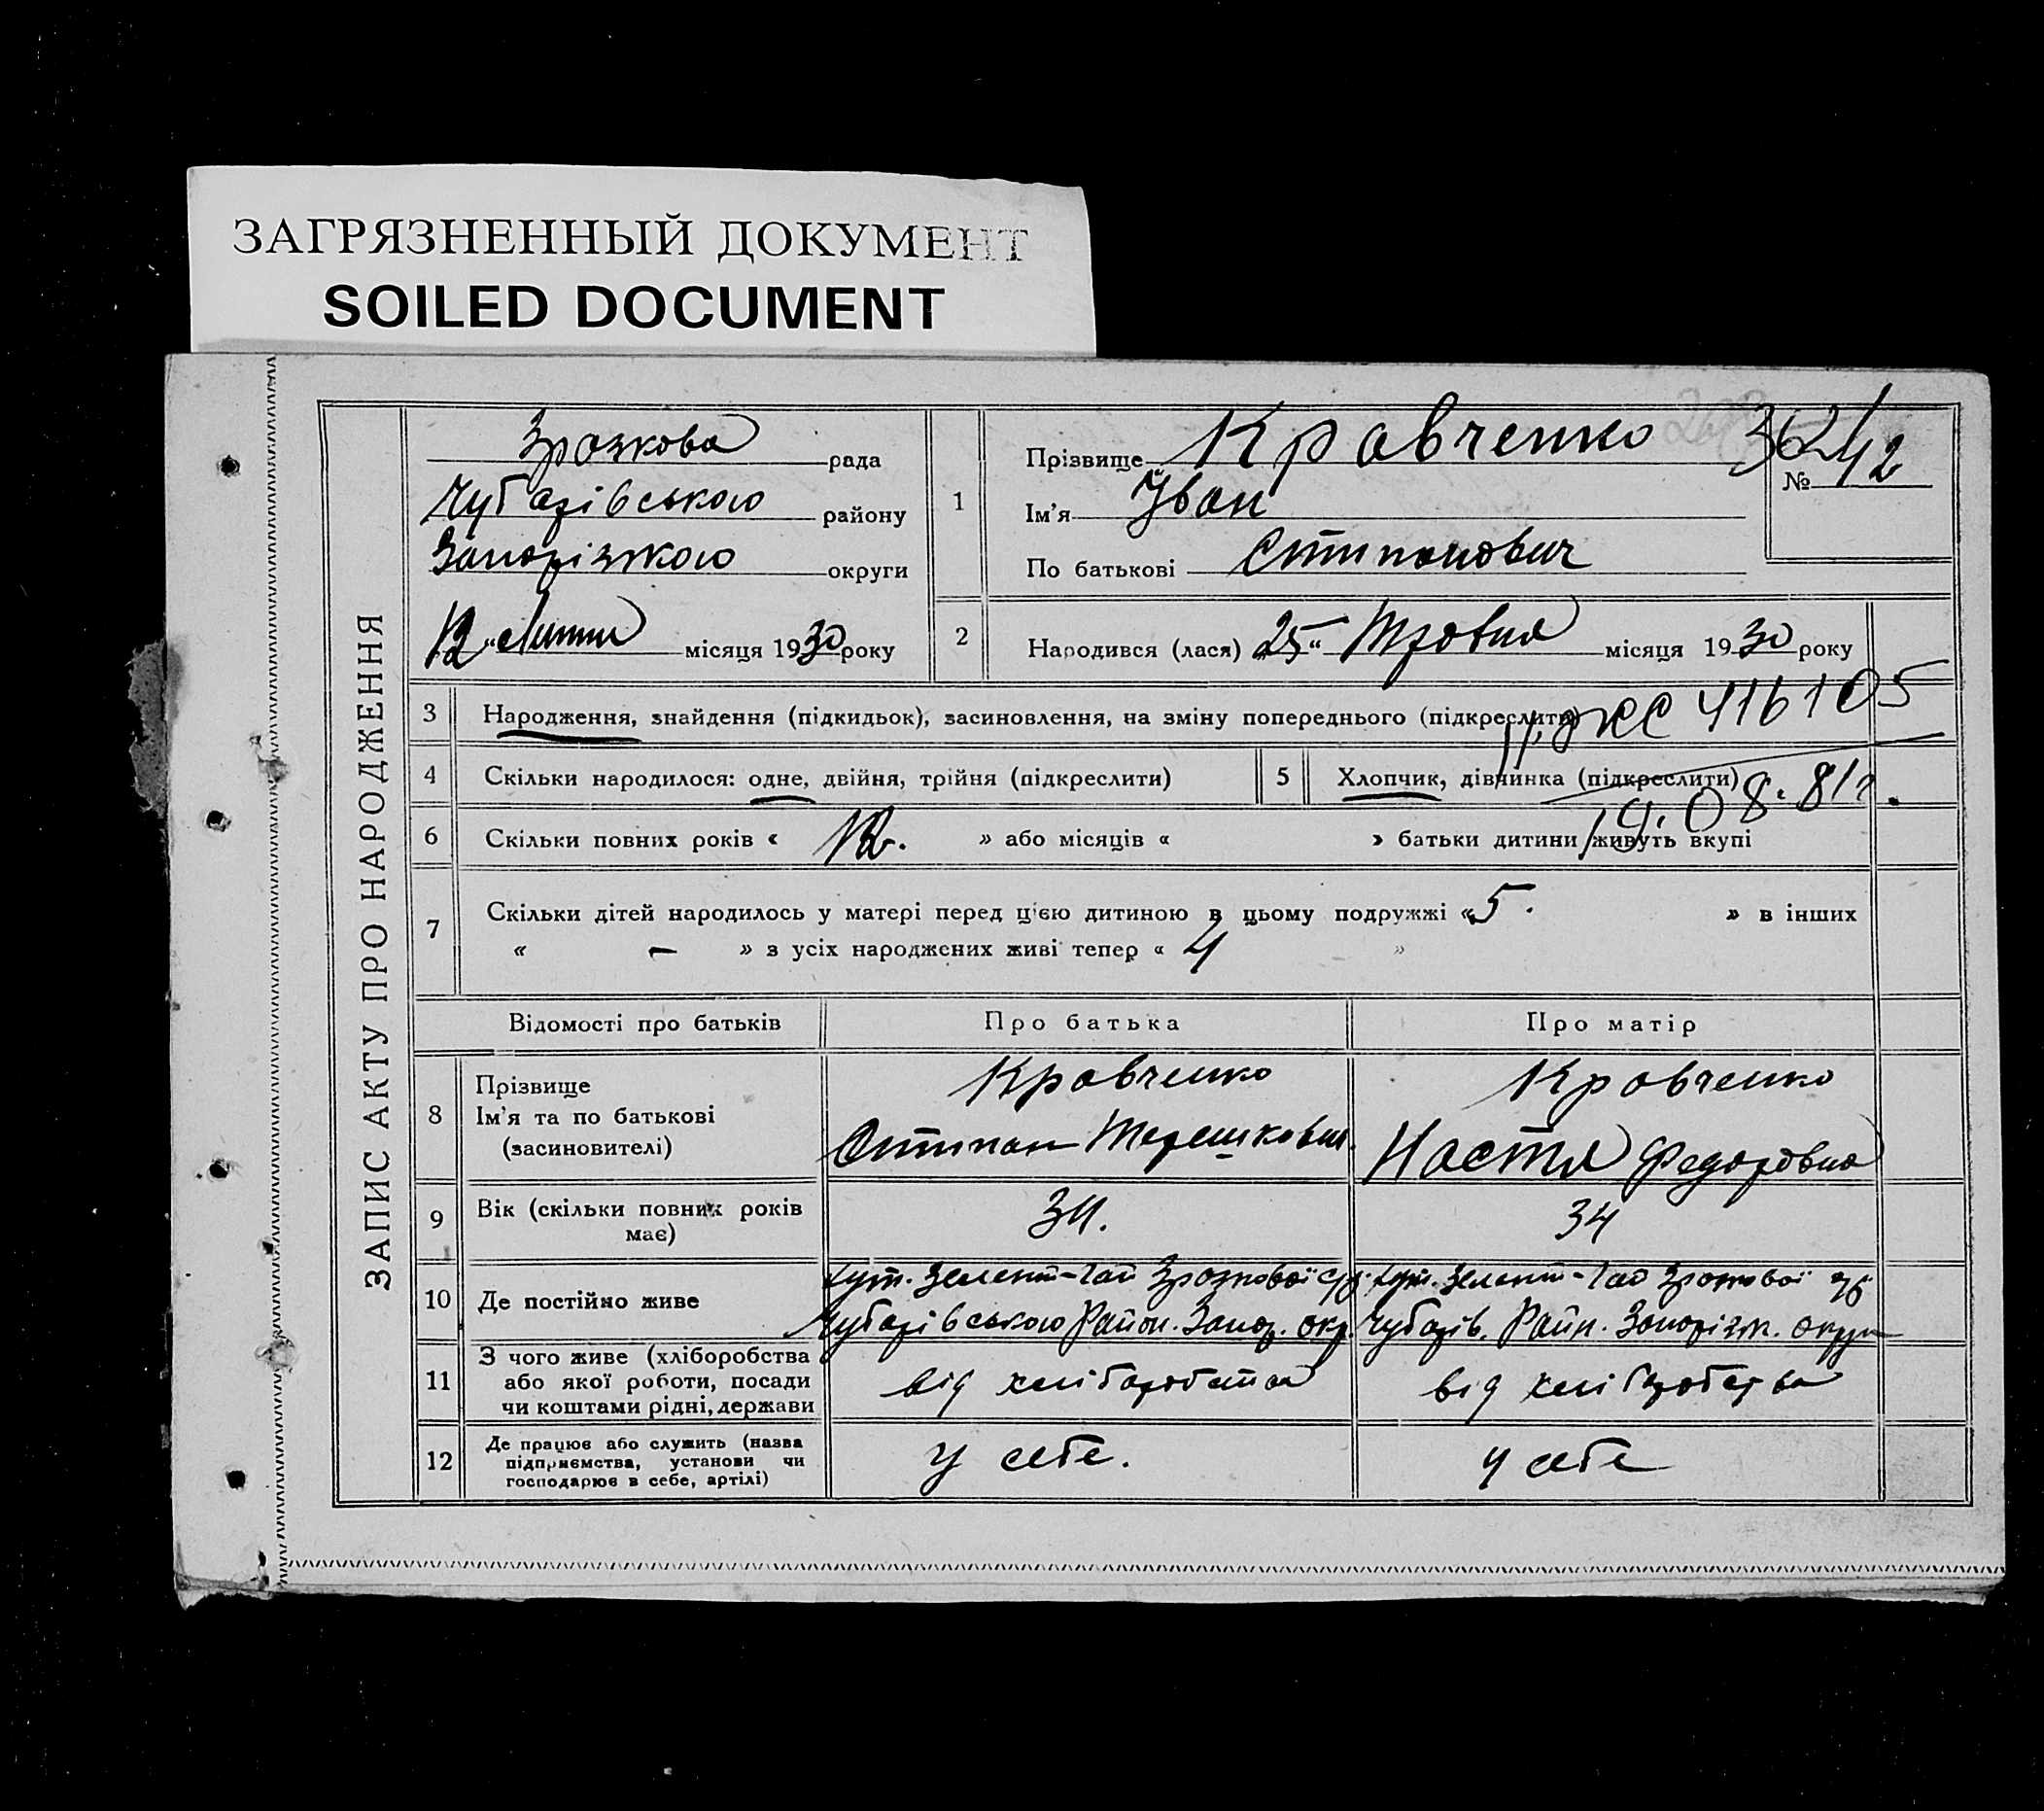 ЗАГРЯЗНЕННЫЙ ДОКУМЕНТ
SOILED DOCUMENT
ЗАПИС АКТУ ПРО НАРОДЖЕННЯ
Зразкова рада
Чубарівського району
Запорізького округи
12 " Липня місяця 1930 року
1
Прізвище Кравченко
Ім'я Іван
По батькові Стипанович
№ 42
2
Народився (лася) „25“ Травня місяця 1930 року
3 Народження, знайдення (підкидьок), засиновлення, на зміну попереднього (підкреслити)
416105
4 Скільки народилося: одне, двійня, трійня (підкреслити)
5 Хлопчик, дівчинка (підкреслити)
19.08.81г.
6 Скільки повних років « 12. » або місяців « » батьки дитини живуть вкупі
7 Скільки дітей народилось у матері перед цією дитиною в цьому подружжі «5. » в інших
« – » з усіх народжених живі тепер « 4 »
Відомості про батьків Про батька Про матір
8 Прізвище
Ім'я та по батькові
(засиновителі)
Кравченко
Стипан Терешкович
Кравченко
Настя Федоровна
9 Вік (скільки повних років має)
34.
34
10 Де постійно живе
хут. Зелений-Гай Зразкової с/р
Чубарівського Район. Запор. окр.
хут. Зелений-Гай Зразкової
Чубарів. Райн. Запоріжж. округи
11 З чого живе (хліборобства
або якої роботи, посади
чи коштами рідні, держави
від хліборобства
від хліборобства
12 Де працює або служить (назва
підприємства, установи чи
господарює в себе, артілі)
у себе.
у себе